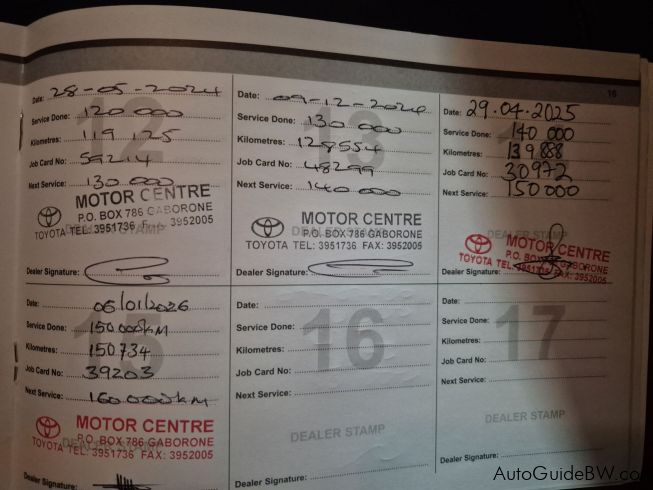 12
Date: 28-05-2024
Service Done: 120 000
Kilometres: 119 125
Job Card No: 59214
Next Service: 130 000
MOTOR CENTRE
P.O. BOX 786 GABORONE
DEALER STAMP
TOYOTA TEL: 3951736 Fax: 3952005
Dealer Signature:
13
Date: 09-12-2024
Service Done: 130 000
Kilometres: 128554
Job Card No: 48299
Next Service: 140 000
MOTOR CENTRE
P.O. BOX 786 GABORONE
DEALER STAMP
TOYOTA TEL: 3951736 FAX: 3952005
Dealer Signature:
16
Date: 29.04.2025
Service Done: 140 000
Kilometres: 139 888
Job Card No: 30972
Next Service: 150 000
DEALER STAMP
MOTOR CENTRE
P.O. BOX 786 GABORONE
TOYOTA TEL: 3951736 FAX: 3952005
Dealer Signature:
15
Date: 06/01/2026
Service Done: 150 000KM
Kilometres: 150734
Job Card No: 39203
Next Service: 160 000KM
MOTOR CENTRE
P.O. BOX 786 GABORONE
DEALER STAMP
TOYOTA TEL: 3951736 FAX: 3952005
Dealer Signature:
16
Date:
Service Done:
Kilometres:
Job Card No:
Next Service:
DEALER STAMP
Dealer Signature:
17
Date:
Service Done:
Kilometres:
Job Card No:
Next Service:
DEALER STAMP
Dealer Signature:
AutoGuideBW.co